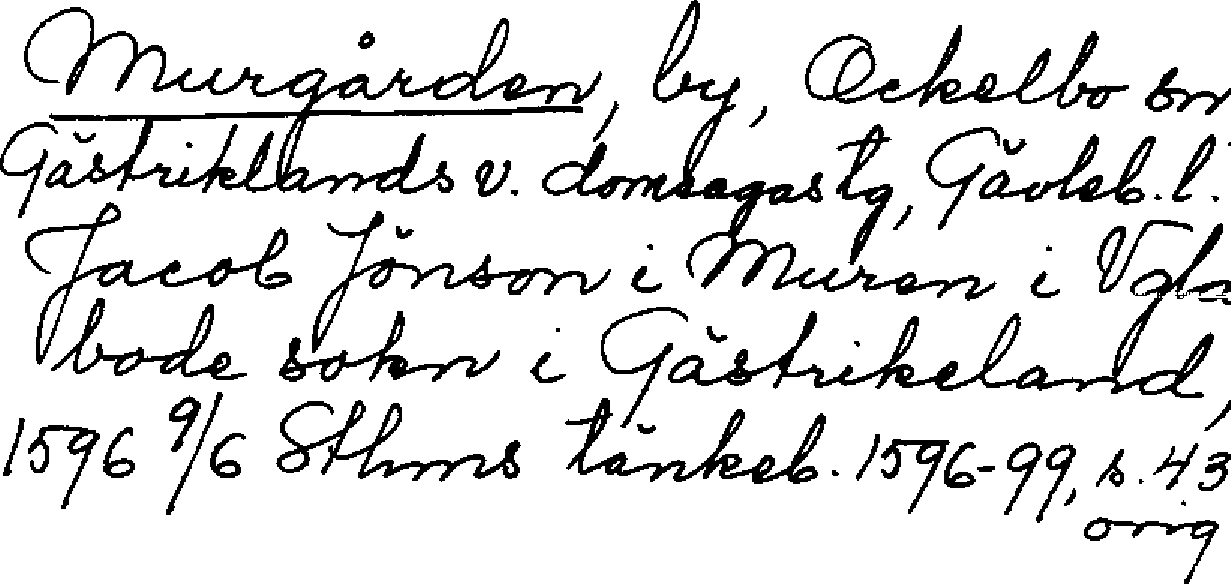 Murgården, by, Ockelbo sn
Gästriklands v. domsagas tg, Gävleb. l.
Jacob Jönson i Muren i Vgla
bode sokn i Gästrikeland,
1596 9/6 Sthms tänkeb. 1596-99, s. 43
orig